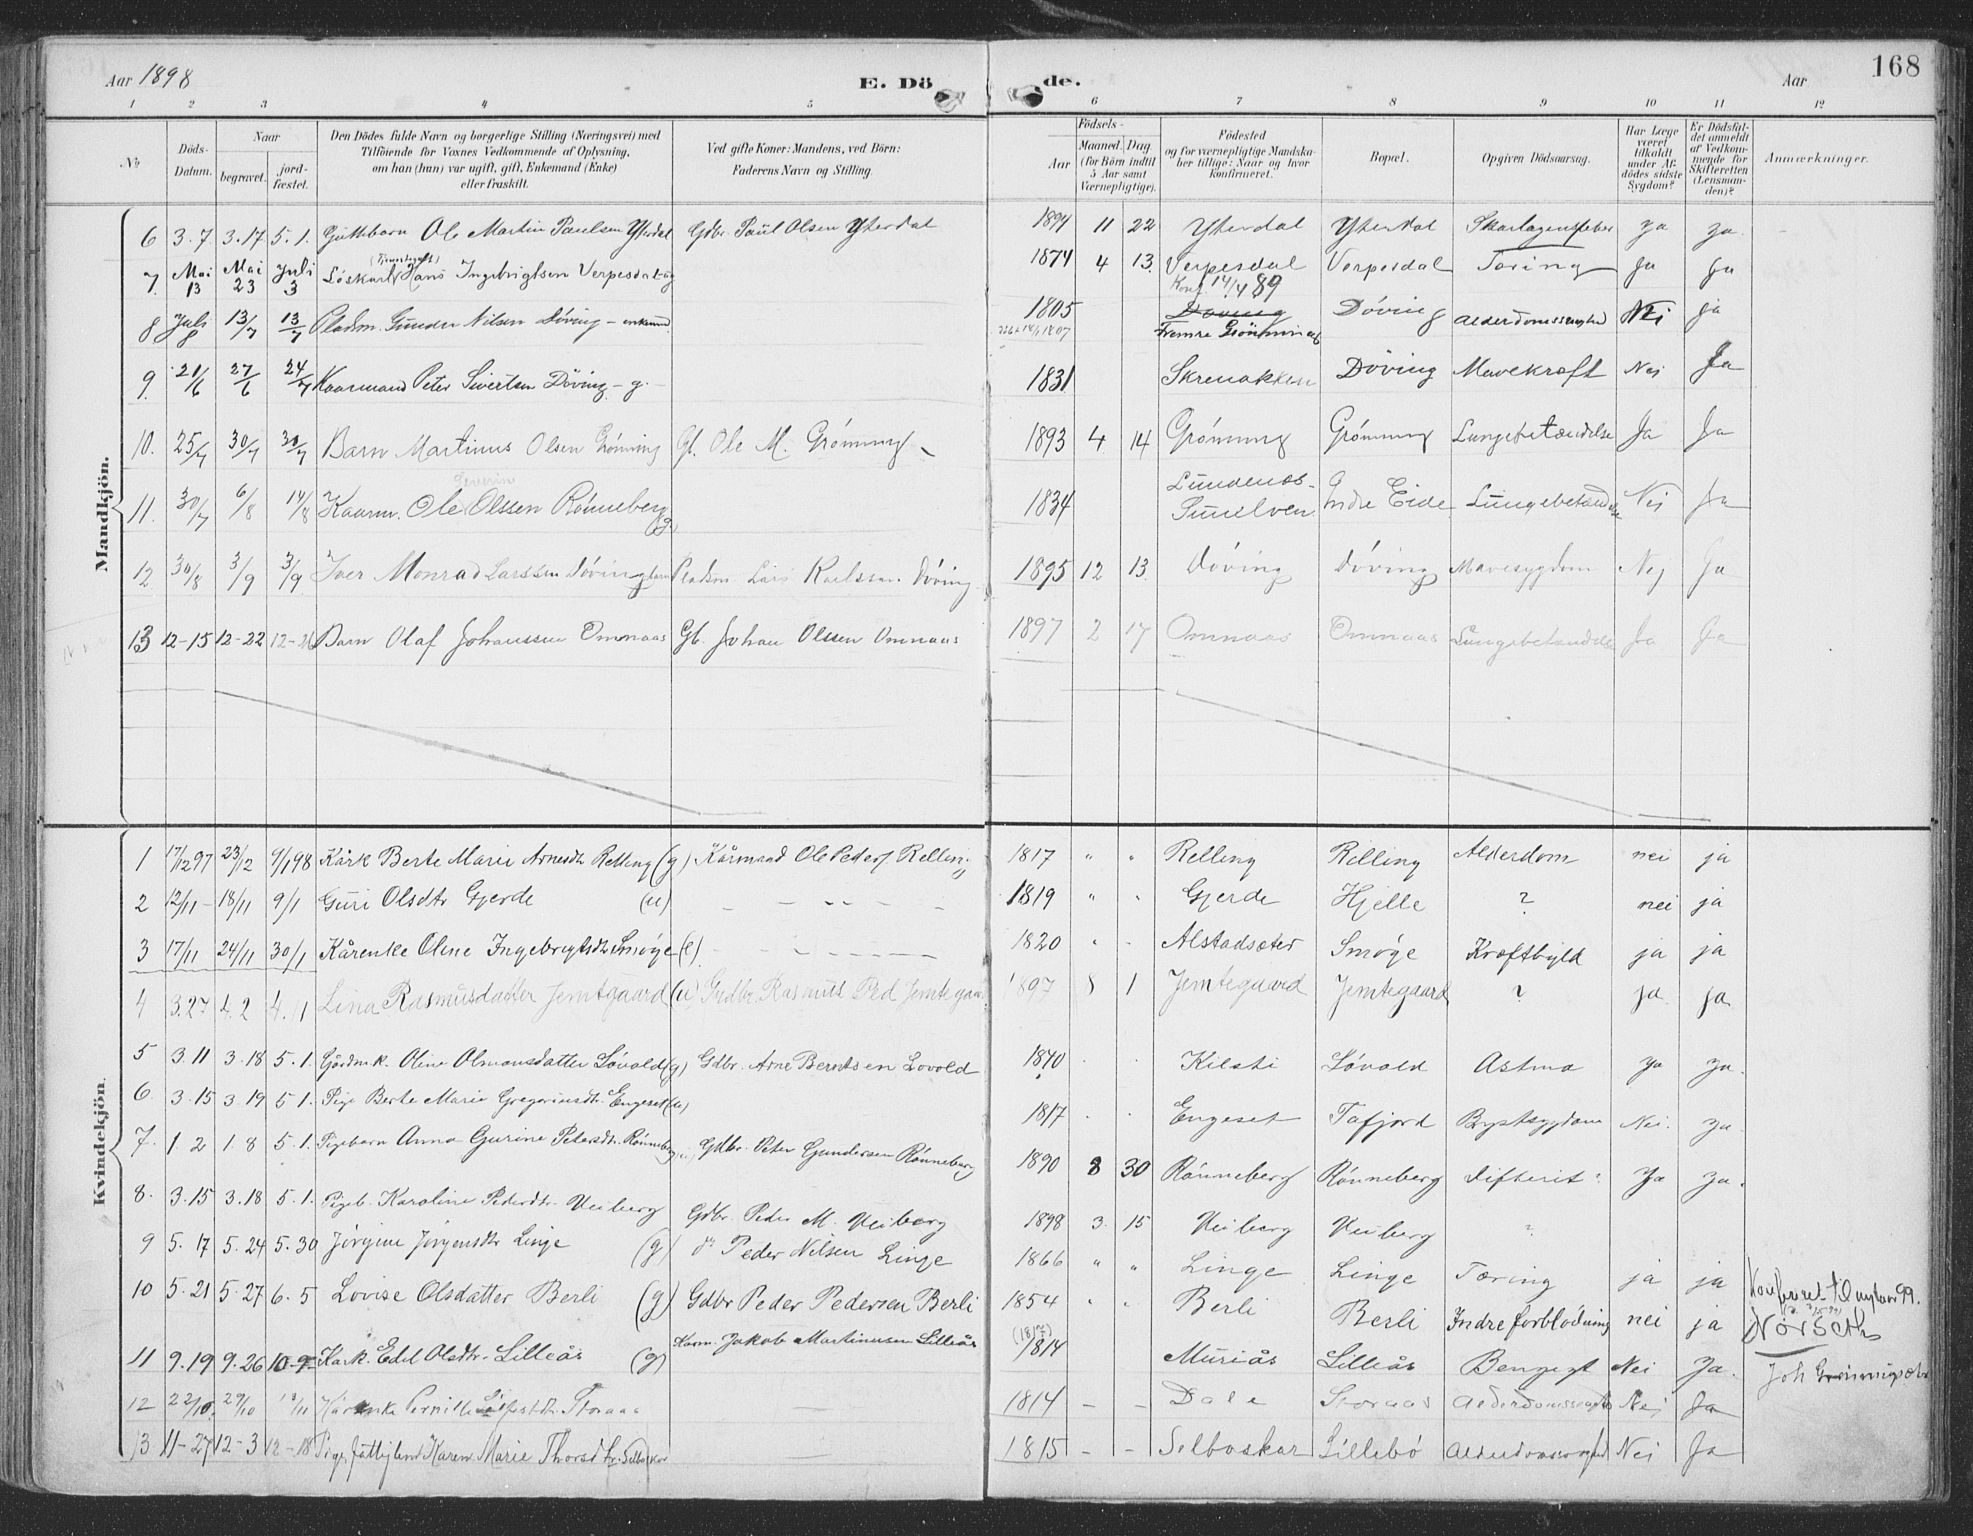 Aar 1898
E. Dö de.
Aar
168
1 2 3 4 5 6 7 8 9 10 11 12
No
Döds-Datum.
Naar
begravet.
jord-fæstet.
Den Dödes fulde Navn og borgerlige Stilling (Næringsvei) med
Tilföiende for Voxnes Vedkommende af Oplysning,
om han (hun) var ugift, gift, Enkemand (Enke)
eller fraskilt.
Ved gifte Koner: Mandens, ved Börn:
Faderens Navn og Stilling.
Födsels-
Aar
Maaned. Dag
(for Börn indtil
5 Aar samt
Værnepligtige).
Födested
og for værnepligtige Mandska-
ber tillige: Naar og hvor
Konfirmeret.
Bopæl.
Opgiven Dödsaarsag.
Har Læge
været
tilkaldt
under Af-
dödes sidste
Sygdom?
Er Dödsfal-
det anmeldt
af Vedkom-
mende for
Skifteretten
(Lensman-
den)?
Anmærkninger.
Mandkjön.
6 3.7 3.17 5.1. Guttebarn Ole Martin Paulsen Yterdal Gdbr. Paul Olsen Yterdal 1894 11 22 Yterdal Yterdal Skarlagensfeber Ja Ja.
7. Mai 13 Mai 23 Juli 3 Løskarl Hans Ingebrigtsen Verpesdal ug 1874 4 13. Verpesdal Verpesdal Tæring Ja Ja
Konf. 14/4 89
8 Juli 8 13/7 13/7 Pladsm. Gunder Nilsen Döving – enkem. 1805 Döving Döving Alderdomssvaghed Nei ja
Fremre Grönning
9. 21/6 27/6 24/7 Kaarmand Peter Sivertsen Döving – g. – 1831 Skrenakken Döving Mavekræft Nei Ja
10. 25/7 30/7 30/7 Barn Martinus Olsen Grønning Gb. Ole M. Grønning 1893 4 14 Grønning Grønning Lungebetændelse Ja Ja
Severin
11. 30/7 6/8 14/8 Kaarm. Ole Olssen Rønneberg g. 1834 Lundenæs- Sunelven Indre Eide Lungebetændelse Nei Ja
12 30/8 3/9 3/9 Iver Monrad Larssen Døving barn Pladsm Lars Karlssen Døving 1895 12 13. Døving Døving Mavesygdom Nej Ja
13 12–15 12–22 12–26 Barn Olaf Johanssen Omenaas Gb. Johan Olssen Omenaas 1897 2 17 Omenaas Omenaas Lungebetændelse Ja Ja
Kvindekjön.
1 17/12 97 23/12 9/1 98 Kårk Berte Marie Arnesdtr Relling (g) Kårmand Ole Peders. Relling 1817 " " Relling Relling Alderdom nei ja
2 12/11 – 18/11 9/1 Guri Olsdtr Gjerde (u) – – – – – 1819 " " Gjerde Hjelle ? nei ja
3 17/11 24/11 30/1 Kårenke Oline Ingebrigtsdtr Smøge (e) – – – – 1820 " " Alstadsæter Smøge Kræftbyld ja ja
4 3.27 4.2 4.11 Lina Rasmusdatter Jemtegaard (u) Gudbr. Rasmus Ped Jemtegaard 1897 8 1 Jemtegaard Jemtegaard ? ja ja
5 3.11 3.18 5.1. Gårdmk. Oline Olmansdatter Løvold (g) Gdbr. Arne Berntsen Lovold 1840 . . Kilsti Løvold Astma Ja Ja.
6. 3.15 3.19 5 1. Pige Berte Marie Gregoriusdtr. Engeset (u) 1817 . . Engeset Tafjord Brystsygdom Nei. Ja.
7. 1 2 1.8 5.1. Pigebarn Anna Gurine Petersdtr. Rønneberg Gdbr. Peter Gundersen Rønneberg 1890 8 30 Rønneberg Rønneberg Difterit. Ja Ja.
8. 3.15 3.18 5.1. Pigeb. Karoline Pedersdtr. Veiberg Gdbr. Peder M. Veiberg 1898 3. 15 Veiberg Veiberg ?
9 5.17 5.24 5.30 Jørgine Jørgensdtr Linge (g) do Peder Nilsen Linge 1866 " " Linge Linge Tæring ja ja
10 5.21 5.27 6.5 Lovise Olsdatter Berli (g) Gdbr Peder Pedersen Berli 1854 " " Berli Berli Indre forblødning nei ja
11 9.19 9.26 10–9 Kark. Edel Olsdtr. Lilleås (g) Karm. Jakob Martinusen Lilleås 1814 Muriås Lilleås Nei Ja.
12 22/10. 29/10 Kårenke Pernille Storaas 1814 – – Dale Storaas Alderdomssvaghed Nei Ja
13 11–27 12–3 12–18 Pige Karen Marie Thorsdtr. Selboskar 1815 – – Selboskar Lillebø Alderdomssvaghed Nei Ja
Konfereret til nytaar 99.
Nörseth
Joh Grönningsæter